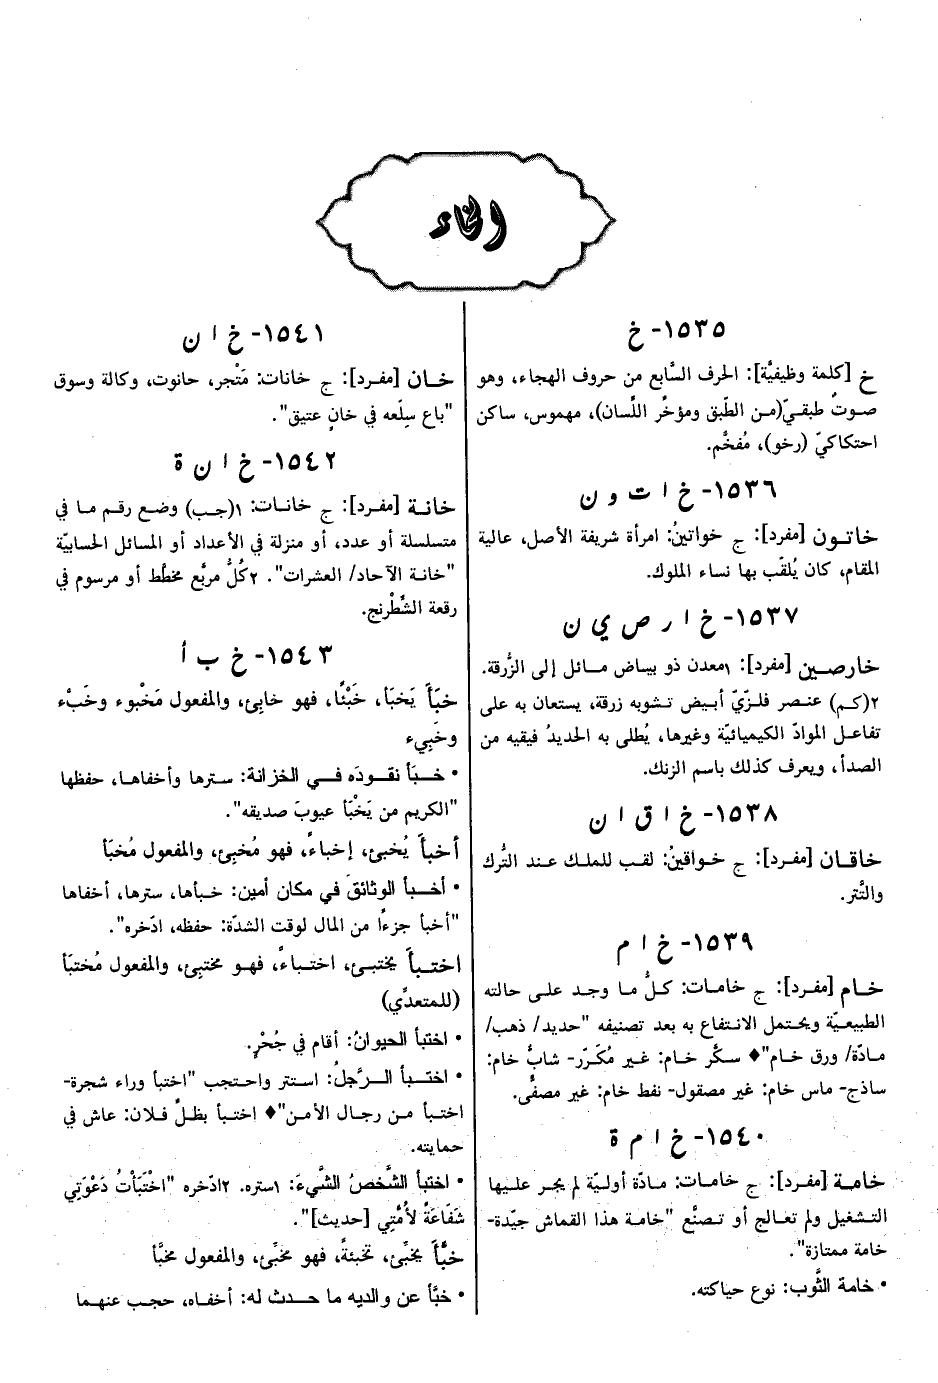 الخاء
١٥٣٥- خ
خ [كلمة وظيفيَّة]: الحرف السَّابع من حروف الهجاء، وهو
صوتٌ طبقيّ(من الطَّبق ومؤخَّر اللِّسان)، مهموس، ساكن
احتكاكيّ (رخو)، مُفخَّم.
١٥٣٦- خ ا ت و ن
خاتون [مفرد]: ج خواتينُ: امرأة شريفة الأصل، عالية
المقام، كان يُلقّب بها نساء الملوك.
١٥٣٧- خ ا ر ص ي ن
خارصين [مفرد]: ١معدن ذو بياض مائل إلى الزُّرقة.
٢(كم) عنصر فلزّيّ أبيض تشوبه زرقة، يستعان به على
تفاعل الموادّ الكيميائيّة وغيرها، يُطلى به الحديدُ فيقيه من
الصدأ، ويعرف كذلك باسم الزنك.
١٥٣٨- خ ا ق ا ن
خاقان [مفرد]: ج خواقينُ: لقب للملك عند التُّرك
والتَّتر.
١٥٣٩- خ ا م
خام [مفرد]: ج خامات: كلُّ ما وجد على حالته
الطبيعيّة ويحتمل الانتفاع به بعد تصنيفه "حديد/ ذهب/
مادّة/ ورق خام"♦ سكّر خام: غير مُكرّر- شابٌّ خام:
ساذج- ماس خام: غير مصقول- نفط خام: غير مصفًّى.
١٥٤٠- خ ا م ة
خامة [مفرد]: ج خامات: مادّة أوليّة لم يجر عليها
التشغيل ولم تعالج أو تصنَّع "خامة هذا القماش جيّدة-
خامة ممتازة".
• خامة الثَّوب: نوع حياكته.
١٥٤١- خ ا ن
خان [مفرد]: ج خانات: مَتْجر، حانوت، وكالة وسوق
"باع سِلَعه في خانٍ عتيق".
١٥٤٢- خ ا ن ة
خانة [مفرد]: ج خانات: ١(جب) وضع رقم ما في
متسلسلة أو عدد، أو منزلة في الأعداد أو المسائل الحسابيّة
"خانة الآحاد/ العشرات". ٢كُلُّ مربَّع مخطَّط أو مرسوم في
رقعة الشِّطْرنج.
١٥٤٣- خ ب أ
خبَأَ يَخبَأ، خَبْئًا، فهو خابِئ، والمفعول مَخْبوء وخَبْء
وخَبِيء
• خبَأ نقودَه في الخزانة: سترها وأخفاها، حفظها
"الكريم من يَخْبَأ عيوبَ صديقه".
أخبأَ يُخبئ، إخباءً، فهو مُخبِئ، والمفعول مُخبَأ
• أخبأ الوثائقَ في مكان أمين: خبأها، سترها، أخفاها
"أخبأ جزءًا من المال لوقت الشدّة: حفظه، ادّخره".
اختبأَ يختبئ، اختباءً، فهو مختبِئ، والمفعول مُختبَأ
(للمتعدِّي)
• اختبأ الحيوانُ: أقام في جُحْرٍ.
• اختبأ الرَّجلُ: استتر واحتجب "اختبأ وراء شجرة-
اختبأ من رجال الأمن"♦ اختبأ بظلِّ فلان: عاش في
حمايته.
• اختبأ الشَّخصُ الشَّيءَ: ١ستره. ٢ادّخره "اخْتَبَأْتُ دَعْوَتِي
شَفَاعَةً لأُمَّتِي [حديث]".
خبَّأَ يخبِّئ، تخبئةً، فهو مخبِّئ، والمفعول مخبَّأ
• خبَّأ عن والديه ما حدث له: أخفاه، حجب عنهما